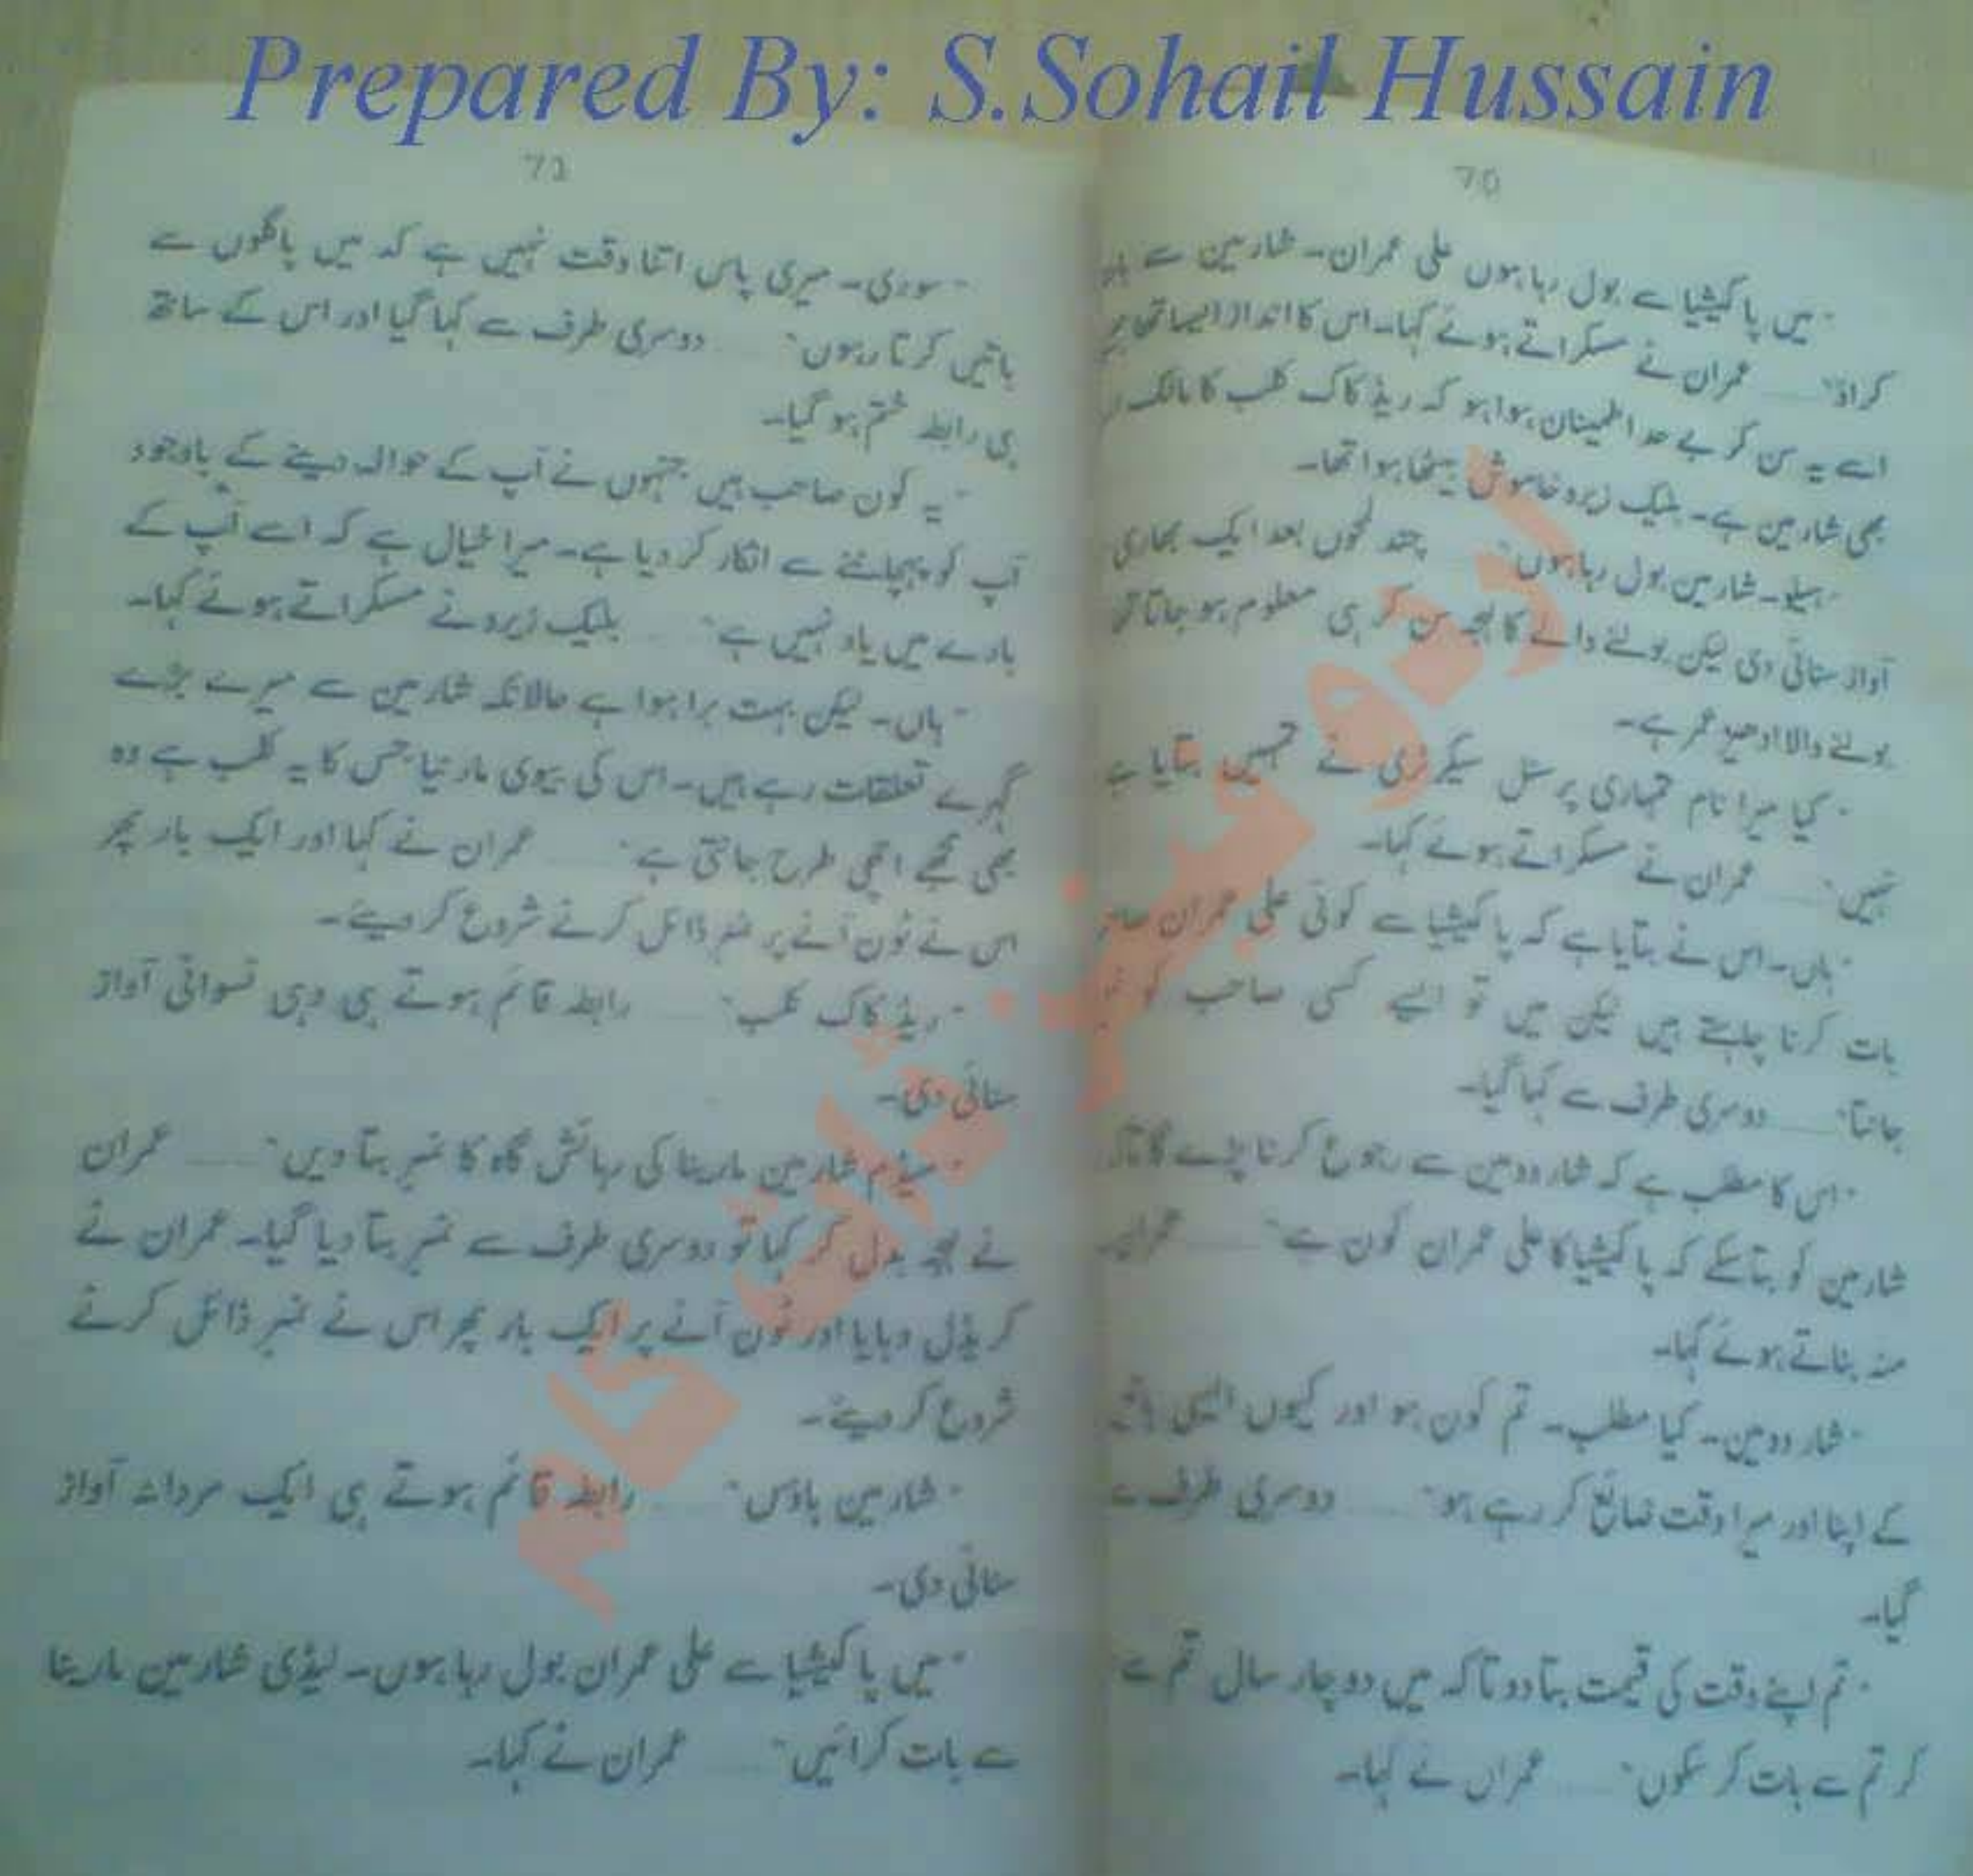 Prepared By: S.Sohail Hussain
70
"میں پاکیشیا سے بول رہا ہوں علی عمران۔ شارمین سے بات
کراؤ"...... عمران نے مسکراتے ہوئے کہا۔ اس کا انداز ایسا تھا
اسے یہ سن کر بے حد اطمینان ہوا ہو کہ ریڈ کاک کلب کا مالک
بھی شارمین ہے۔ بلیک زیرو خاموش بیٹھا ہوا تھا۔
"ہیلو۔ شارمین بول رہا ہوں"...... چند لمحوں بعد ایک بھاری
آواز سنائی دی لیکن بولنے والے کا لہجہ سن کر ہی معلوم ہو جاتا تھا
بولنے والا ادھیڑ عمر ہے۔
"کیا میرا نام تمہاری پرسنل سیکرٹری نے تمہیں بتایا ہے
نہیں"...... عمران نے مسکراتے ہوئے کہا۔
"ہاں۔ اس نے بتایا ہے کہ پاکیشیا سے کوئی علی عمران
بات کرنا چاہتے ہیں لیکن میں تو ایسے کسی صاحب کو
جانتا"...... دوسری طرف سے کہا گیا۔
"اس کا مطلب ہے کہ شار دومین سے رجوع کرنا پڑے گا تاکہ
شارمین کو بتا سکے کہ پاکیشیا کا علی عمران کون ہے"...... عمران
منہ بناتے ہوئے کہا۔
"شار دومین۔ کیا مطلب۔ تم کون ہو اور کیوں ایسی
کے اپنا اور میرا وقت ضائع کر رہے ہو"...... دوسری طرف سے
گیا۔
"تم اپنے وقت کی قیمت بتا دو تاکہ میں دو چار سال تم سے
کر تم سے بات کر سکوں"...... عمران نے کہا۔
71
"سوری۔ میری پاس اتنا وقت نہیں ہے کہ میں پاگلوں سے
باتیں کرتا رہوں"...... دوسری طرف سے کہا گیا اور اس کے ساتھ
ہی رابطہ ختم ہو گیا۔
"یہ کون صاحب ہیں جنہوں نے آپ کے حوالہ دینے کے باوجود
آپ کو پہچاننے سے انکار کر دیا ہے۔ میرا خیال ہے کہ اسے آپ کے
بارے میں یاد نہیں ہے"...... بلیک زیرو نے مسکراتے ہوئے کہا۔
"ہاں۔ لیکن بہت برا ہوا ہے حالانکہ شارمین سے میرے بڑے
گہرے تعلقات رہے ہیں۔ اس کی بیوی مارنیا جس کا یہ کلب ہے وہ
بھی مجھے اچھی طرح جانتی ہے"...... عمران نے کہا اور ایک بار پھر
اس نے ٹون آنے پر نمبر ڈائل کرنے شروع کر دیئے۔
"ریڈ کاک کلب"...... رابطہ قائم ہوتے ہی وہی نسوانی آواز
سنائی دی۔
"میڈم شارمین مارینا کی رہائش گاہ کا نمبر بتا دیں"...... عمران
نے لہجہ بدل کر کہا تو دوسری طرف سے نمبر بتا دیا گیا۔ عمران نے
کریڈل دبایا اور ٹون آنے پر ایک بار پھر اس نے نمبر ڈائل کرنے
شروع کر دیئے۔
"شارمین ہاؤس"...... رابطہ قائم ہوتے ہی ایک مردانہ آواز
سنائی دی۔
"میں پاکیشیا سے علی عمران بول رہا ہوں۔ لیڈی شارمین مارینا
سے بات کرائیں"...... عمران نے کہا۔
اردو فینز ڈاٹ کام